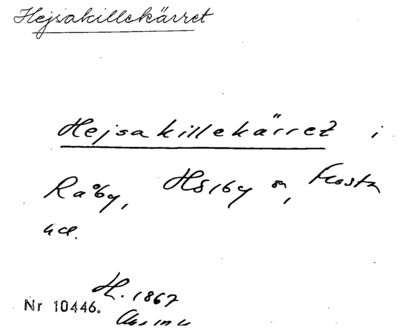 Hejsakillekärret
Hejsakillekärret i
Råby, Hörby sn, Frosta
hd.
H. 1867
Nr 10446.